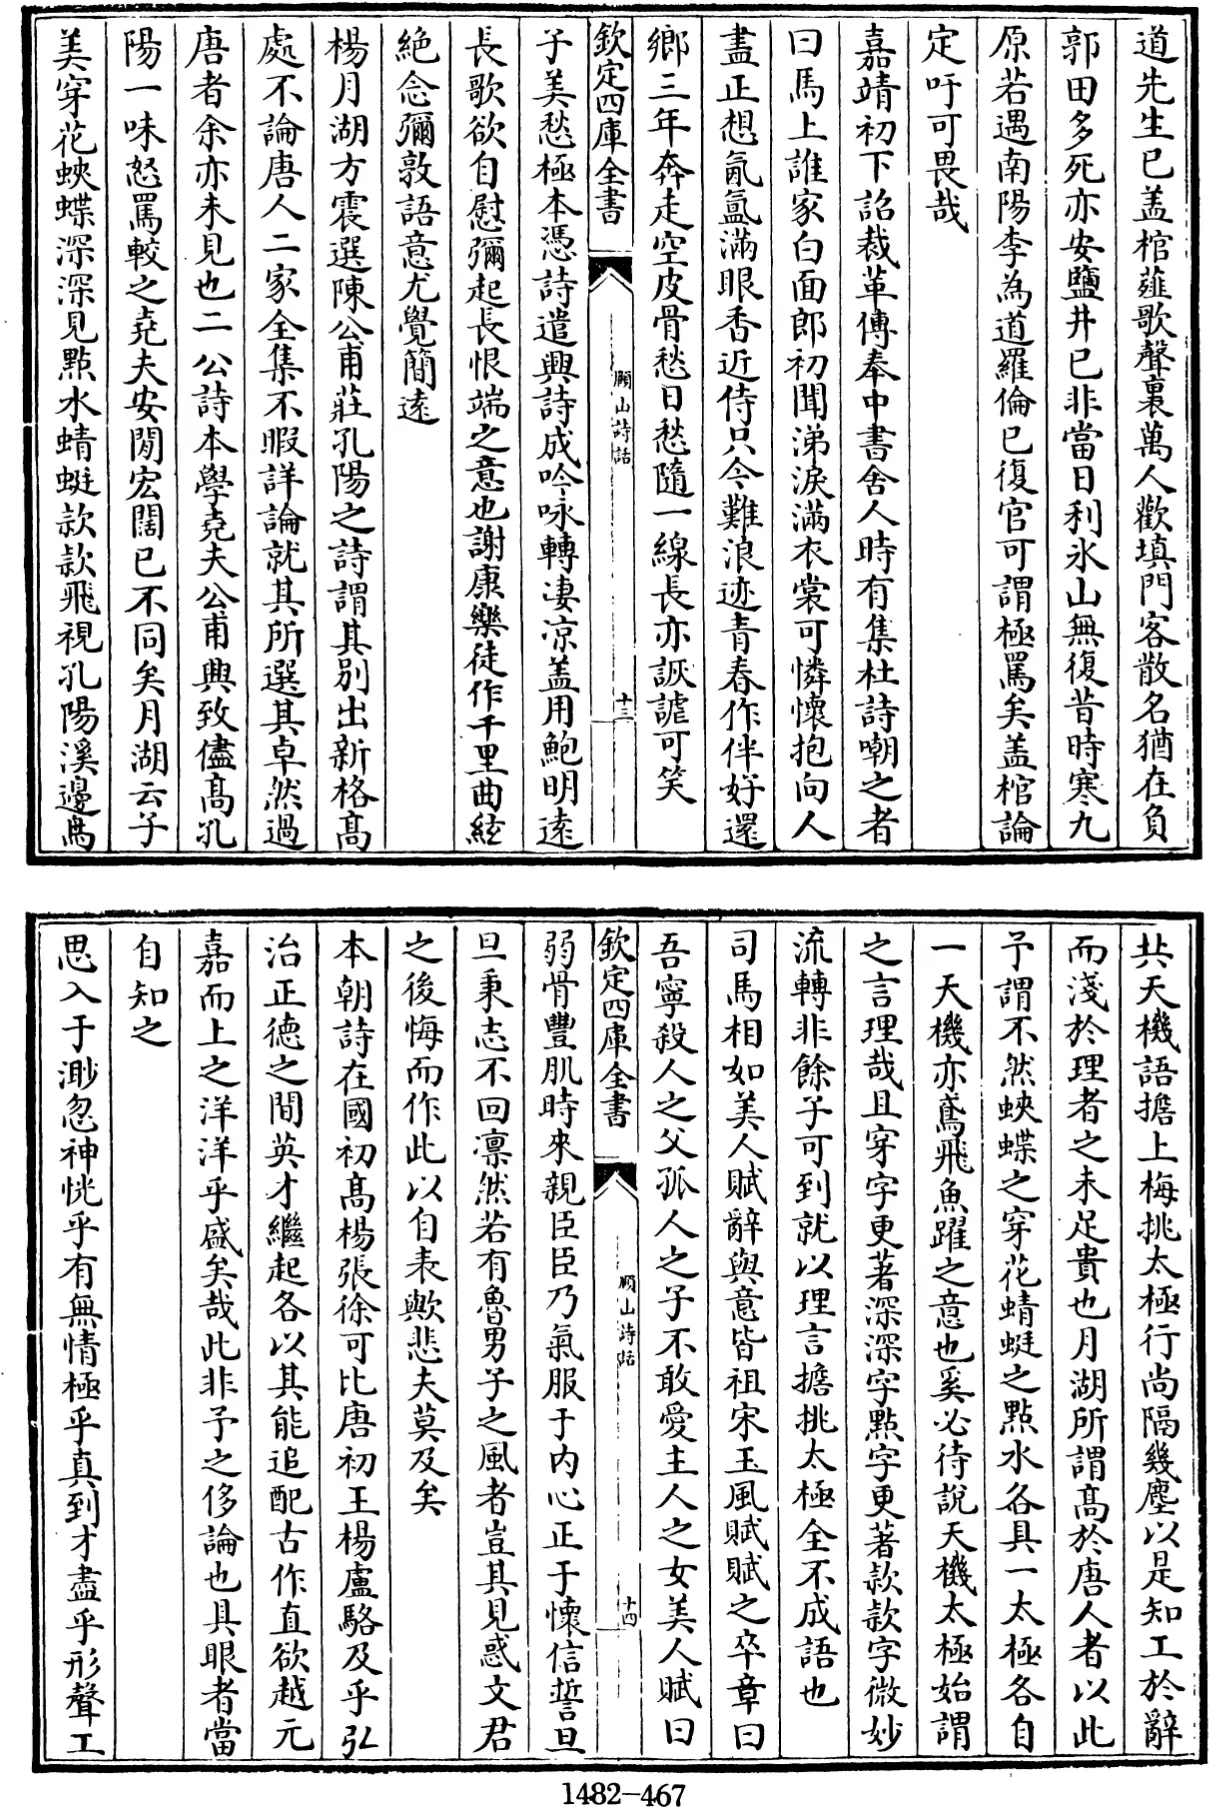 道先生已盖棺薤歌聲裏萬人歡填門客散名猶在負
郭田多死亦安鹽井已非當日利氷山無復昔時寒九
原若遇南陽李為道羅倫已復官可謂極罵矣盖棺論
定吁可畏哉
嘉靖初下詔裁革傳奉中書舍人時有集杜詩嘲之者
曰馬上誰家白面郎初聞涕淚滿衣裳可憐懷抱向人
盡正想氤氲滿眼香近侍只今難浪迹青春作伴好還
鄉三年奔走空皮骨愁日愁隨一線長亦詼謔可笑
欽定四庫全書
頤山詩話
十三
子美愁極本憑詩遣興詩成吟咏轉淒凉盖用鮑明逺
長歌欲自慰彌起長恨端之意也謝康樂徒作千里曲絃
絶念彌敦語意尤覺簡逺
楊月湖方震選陳公甫莊孔陽之詩謂其别出新格髙
處不論唐人二家全集不暇詳論就其所選其卓然過
唐者余亦未見也二公詩本學堯夫公甫興致儘髙孔
陽一味怒罵較之堯夫安閒宏闊已不同矣月湖云子
美穿花蛺蝶深深見點水蜻蜓款款飛視孔陽溪邊鳥
共天機語擔上梅挑太極行尚隔幾塵以是知工於辭
而淺於理者之未足貴也月湖所謂髙於唐人者以此
予謂不然蛺蝶之穿花蜻蜓之點水各具一太極各自
一天機亦鳶飛魚躍之意也奚必待說天機太極始謂
之言理哉且穿字更著深深字點字更著款款字微妙
流轉非餘子可到就以理言擔挑太極全不成語也
司馬相如美人賦辭與意皆祖宋玉風賦賦之卒章曰
吾寧殺人之父孤人之子不敢愛主人之女美人賦曰
欽定四庫全書
頤山詩話
十四
弱骨豐肌時來親臣臣乃氣服于内心正于懷信誓旦
旦秉志不回凛然若有魯男子之風者豈其見惑文君
之後悔而作此以自表歟悲夫莫及矣
本朝詩在國初髙楊張徐可比唐初王楊盧駱及乎弘
治正德之間英才繼起各以其能追配古作直欲越元
嘉而上之洋洋乎盛矣哉此非予之侈論也具眼者當
自知之
思入于渺忽神恍乎有無情極乎真到才盡乎形聲工
1482-467